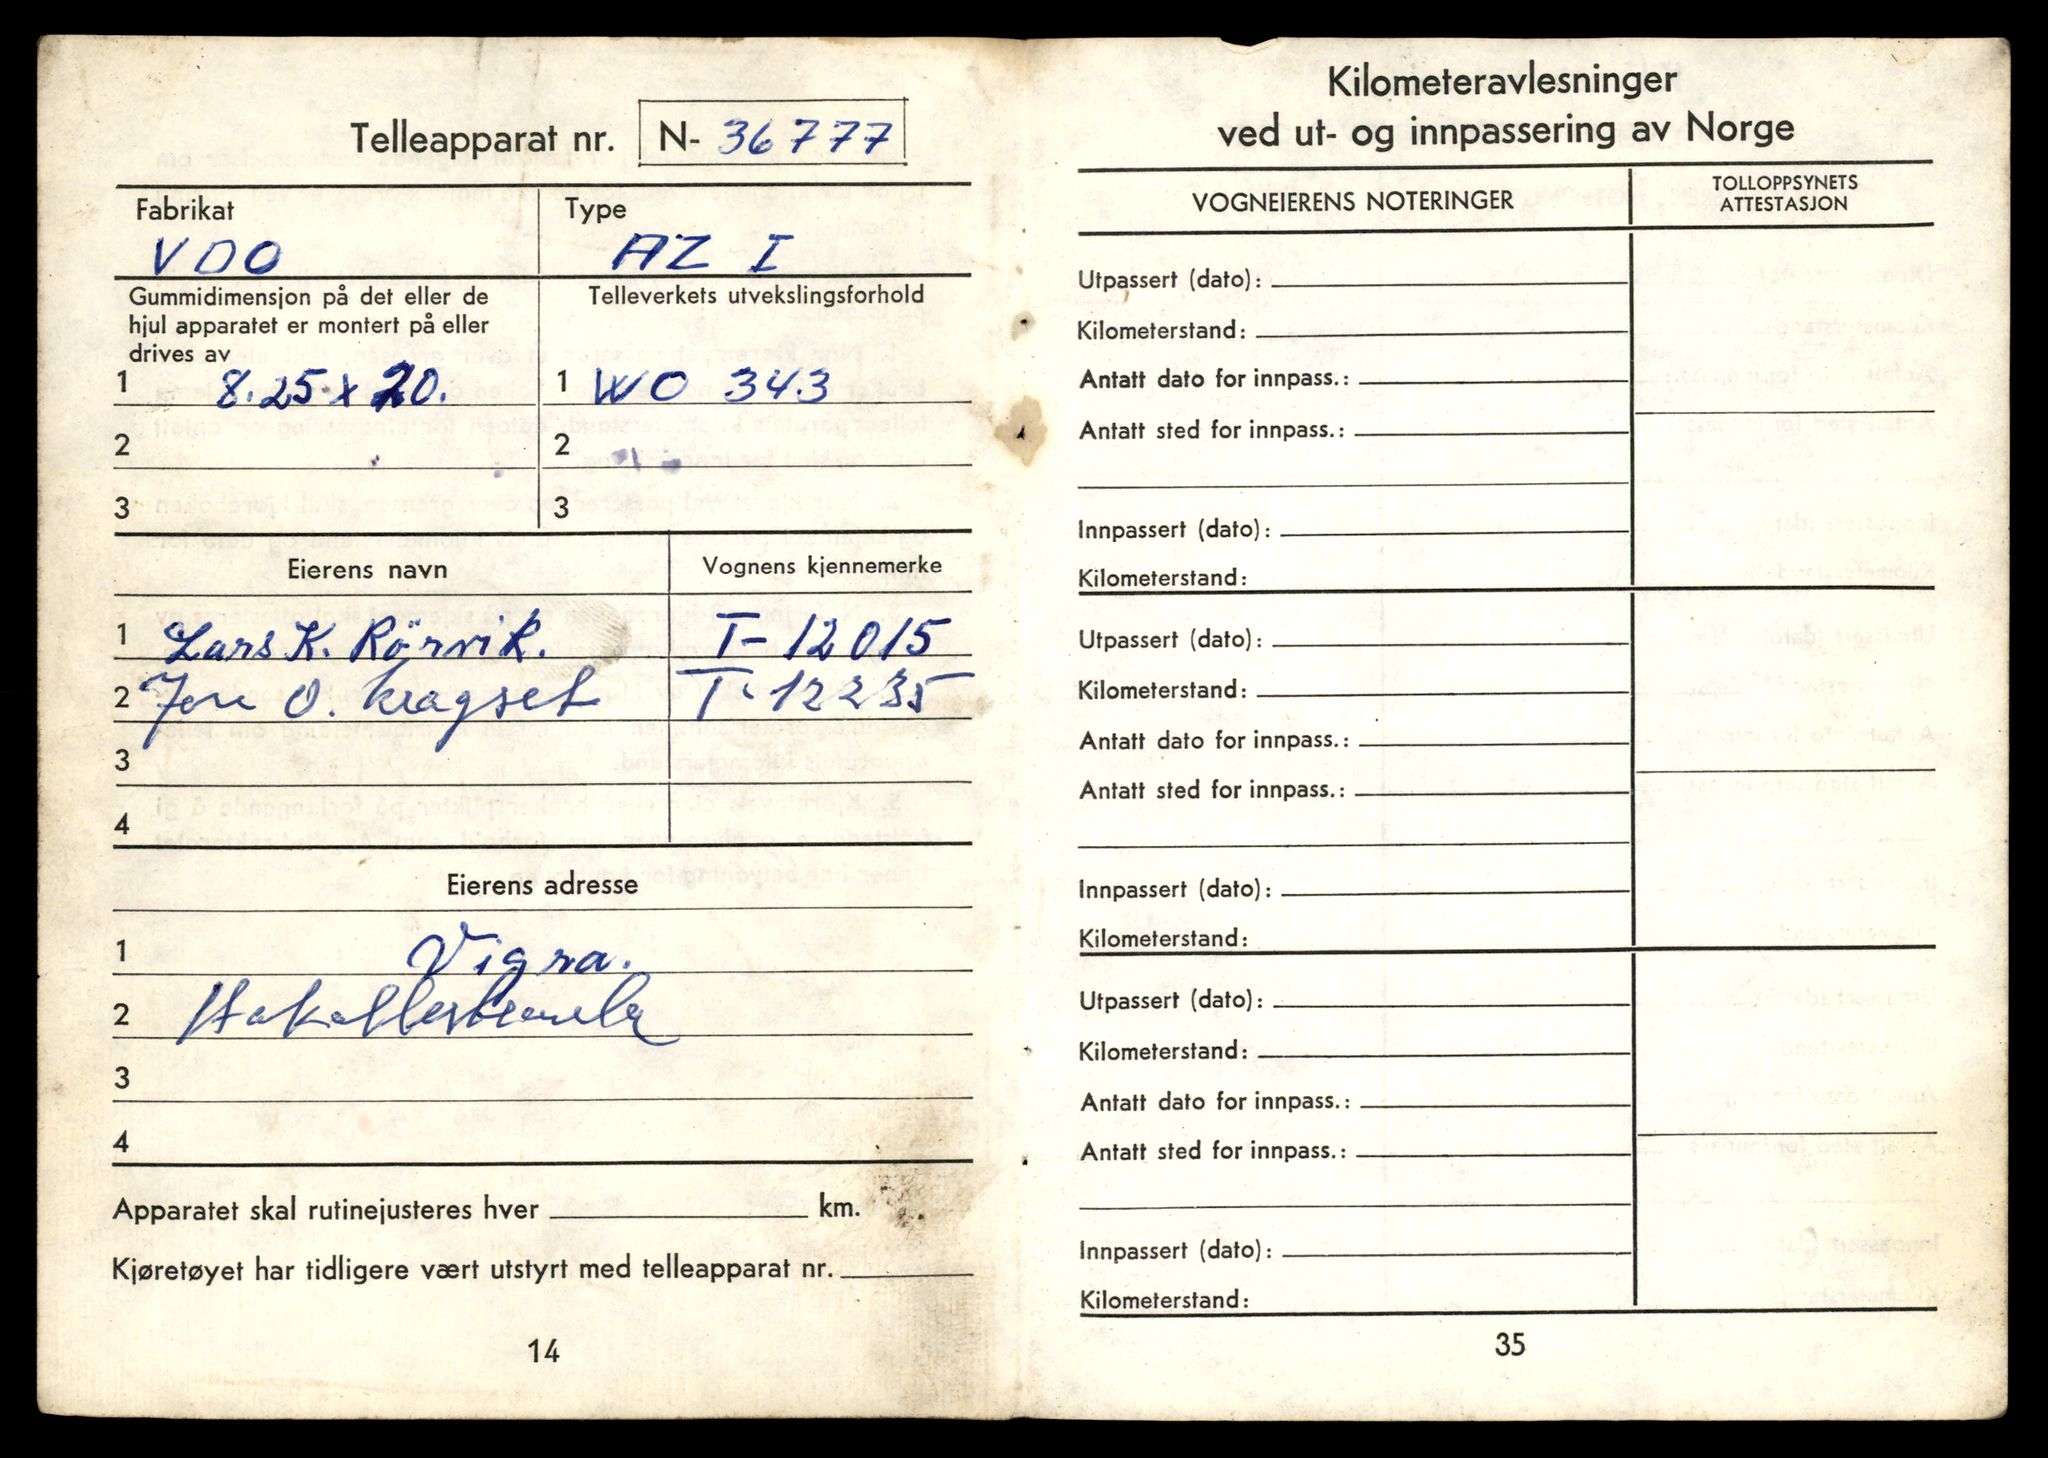 Telleapparat nr. N- 36777
Fabrikat
VDO
Type
AZ I
Gummidimensjon på det eller de
hjul apparatet er montert på eller
drives av
Telleverkets utvekslingsforhold
1 8.25 x 20.
1 WO 343
2
2
3
3
Eierens navn
Vognens kjennemerke
1 Lars K. Rörvik.
T- 12015
2 O. Kragset
T- 12235
3
4
Eierens adresse
1 Vigra.
2
3
4
Apparatet skal rutinejusteres hver km.
Kjøretøyet har tidligere vært utstyrt med telleapparat nr.
14
Kilometeravlesninger
ved ut- og innpassering av Norge
VOGNEIERENS NOTERINGER
TOLLOPPSYNETS
ATTESTASJON
Utpassert (dato):
Kilometerstand:
Antatt dato for innpass.:
Antatt sted for innpass.:
Innpassert (dato):
Kilometerstand:
Utpassert (dato):
Kilometerstand:
Antatt dato for innpass.:
Antatt sted for innpass.:
Innpassert (dato):
Kilometerstand:
Utpassert (dato):
Kilometerstand:
Antatt dato for innpass.:
Antatt sted for innpass.:
Innpassert (dato):
Kilometerstand:
35